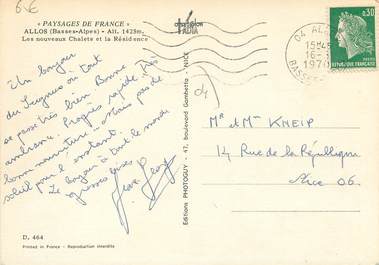 6€
« PAYSAGES DE FRANCE »
ALLOS (Basses-Alpes) - Alt. 1425m.
Les nouveaux Chalets et la Résidence
Un bonjour
du où tout
se passe très bien. Bonne
ambiance. Progrès rapide. Très
bonne nourriture. Mais pas de
soleil pour l'instant.
Le bonjour à tout le monde
grosses bises
Jean
D. 464
Printed in France - Reproduction interdite
Editions PHOTOGUY - 47, boulevard Gambetta - NICE
04
15H45
16-
1970
BASSES
0,30
REPUBLIQUE FRANCAISE
04
Mr et Mme KNEIP
14 Rue de la République
Nice 06.